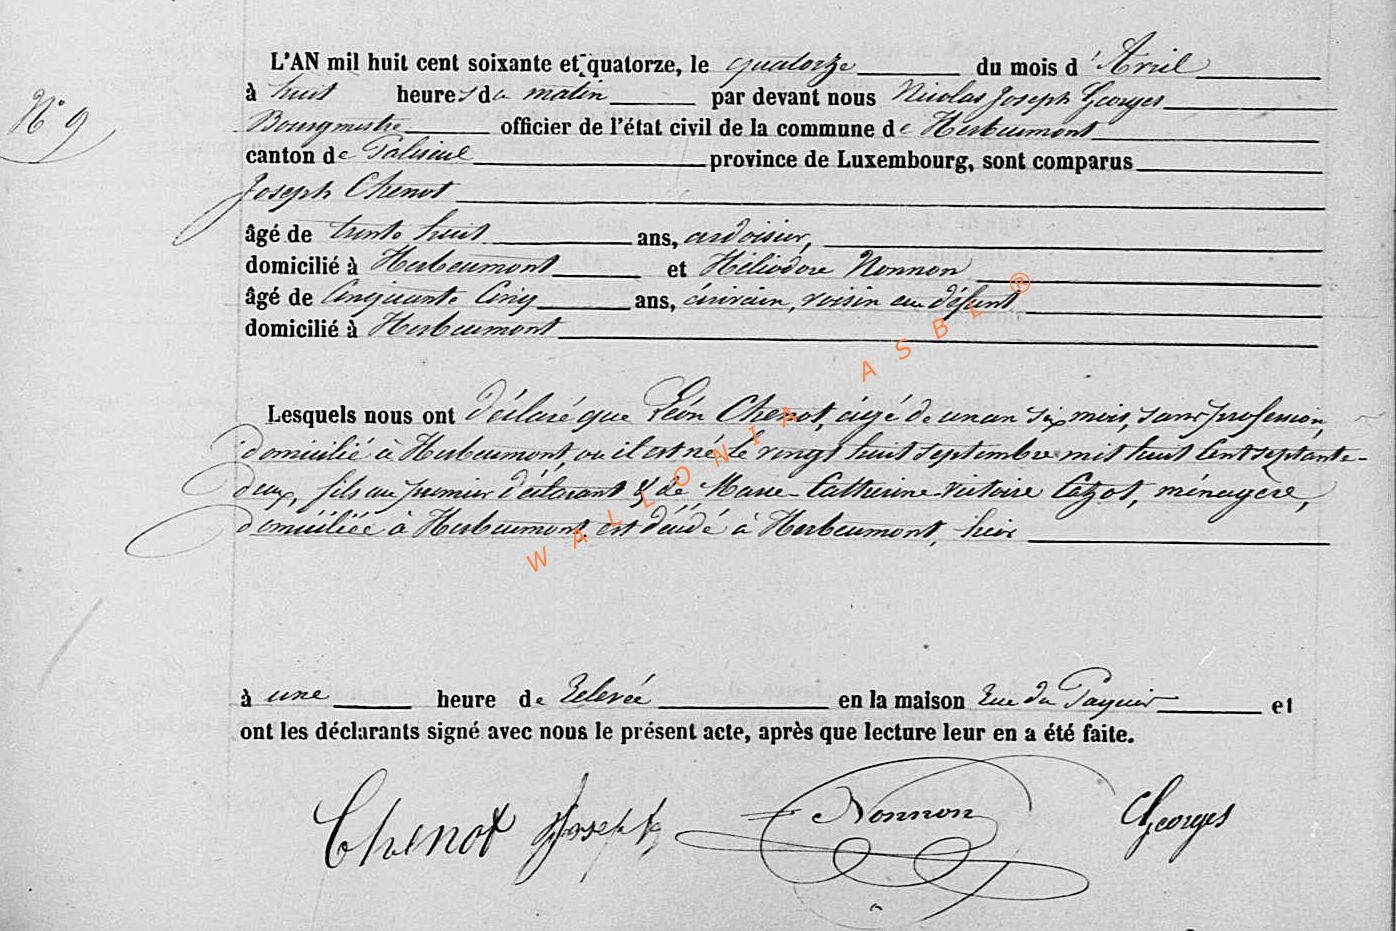 L'AN mil huit cent soixante et quatorze, le quatorze du mois d'Avril
N° 9
à huit heures du matin par devant nous Nicolas Joseph Georges
Bourgmestre officier de l'état civil de la commune de Herbeumont
canton de Paliseul province de Luxembourg, sont comparus
Joseph Chenot
âgé de trente huit ans, ardoisier,
domicilié à Herbeumont et Héliodore Nonnon
âgé de Cinquante Cinq ans, écrivain, voisin au défunt
domicilié à Herbeumont
Lesquels nous ont déclaré que Léon Chenot, âgé de un an six mois, sans profession,
domicilié à Herbeumont, où il est né le vingt huit septembre mil huit cent septante-
deux, fils au premier déclarant & de Marie-Catherine-Victoire Cozot, ménagère,
domiciliée à Herbeumont est décédé à Herbeumont, hier
à une heure de Relevée en la maison Rue du Paquis et
ont les déclarants signé avec nous le présent acte, après que lecture leur en a été faite.
Chenot Joseph Nonnon Georges
WALLONIA ASBL ®